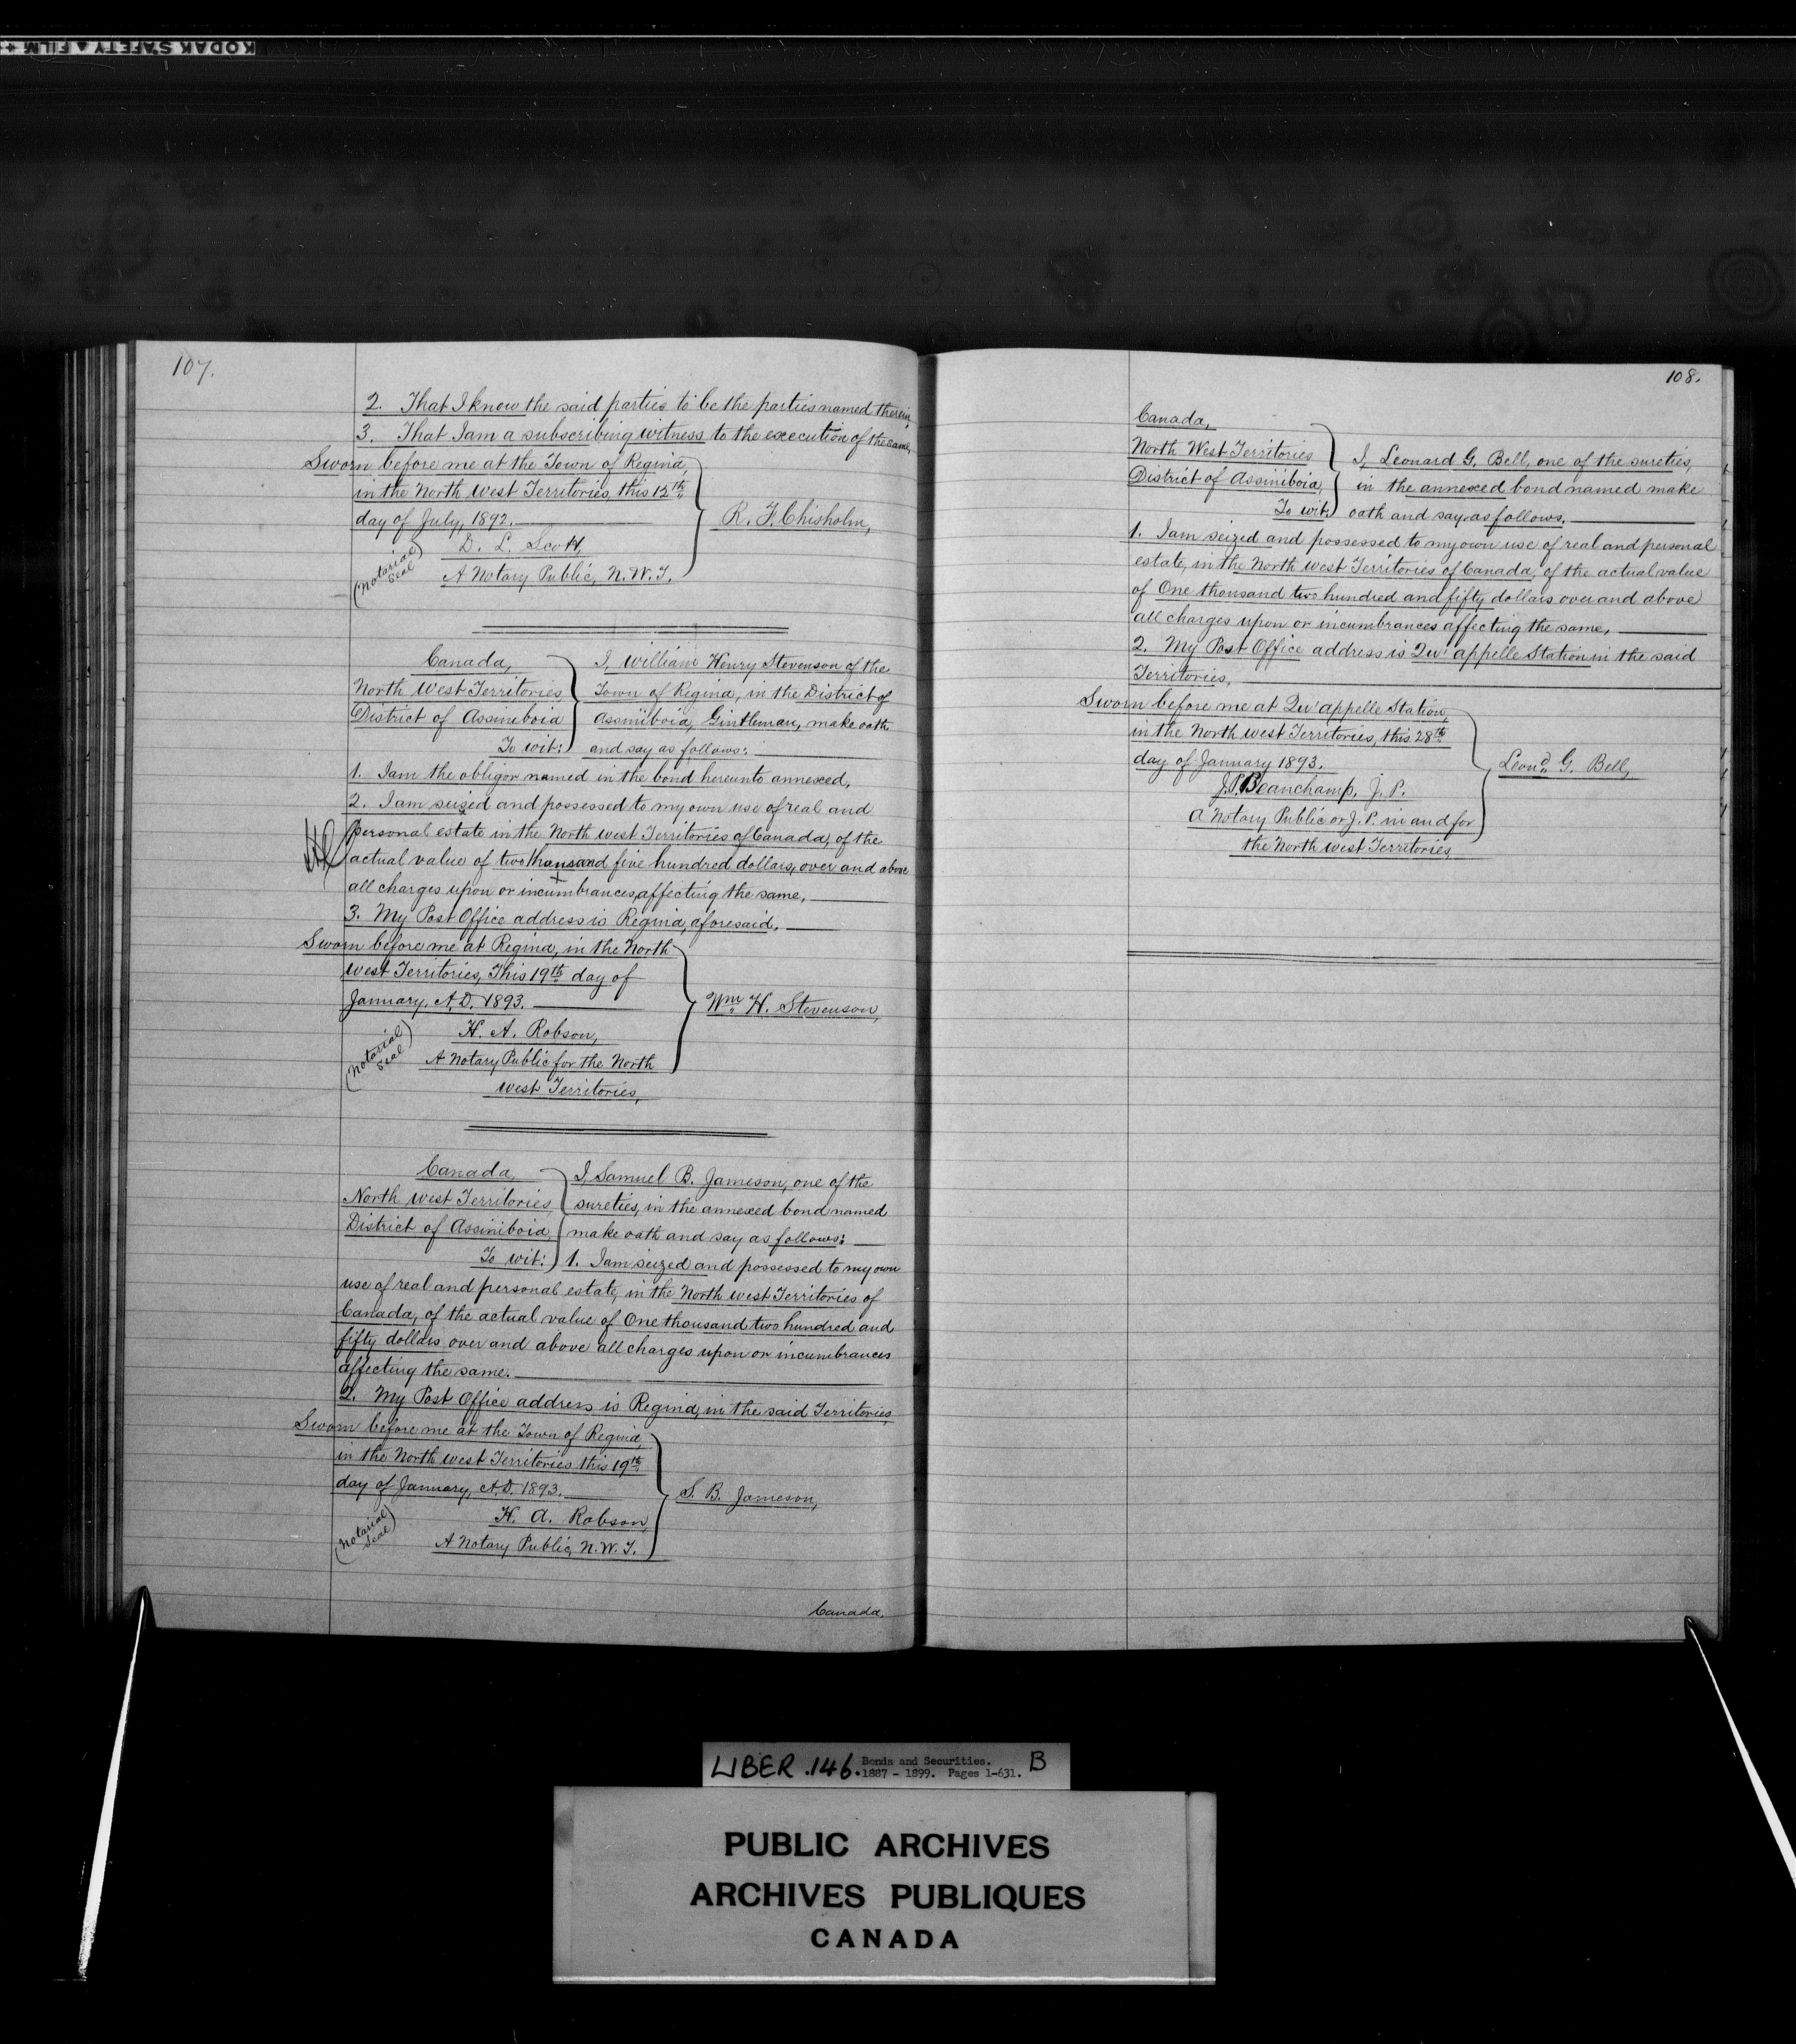 KODAK SAFETY ▲ FILM
107.
2. That I know the said parties to be the parties named therein,
3. That I am a subscribing witness to the execution of the same,
Sworn before me at the Town of Regina,
in the North West Territories, this 12th
day of July, 1892.
R. F. Chisholm,
D. L. Scott,
(Notarial Seal)
A Notary Public, N.W.T.
Canada,
North West Territories
District of Assineboia
To wit:
I, William Henry Stevenson of the
Town of Regina, in the District of
Assiniboia, Gintleman, make oath
and say as follows:
1. I am the obligor named in the bond hereunto annexed,
2. I am seized and possessed to my own use of real and
personal estate in the North west Territories of Canada, of the
actual value of two thousand five hundred dollars, over and above
all charges upon or incumbrances, affecting the same,
3. My Post Office address is Regina, aforesaid.
Sworn before me at Regina, in the North
west Territories, This 19th day of
January, A.D. 1893.
Wm H. Stevenson,
H. A. Robson,
(Notarial Seal)
A Notary Public for the North
west Territories,
Canada,
North west Territories,
District of Assiniboia,
To wit:
I, Samuel B. Jameson, one of the
sureties, in the annexed bond named
make oath and say as follows:
1. I am seized and possessed to my own
use of real and personal estate, in the North west Territories of
Canada, of the actual value of One thousand two hundred and
fifty dollars over and above all charges upon or incumbrances
affecting the same.
2. My Post Office address is Regina, in the said Territories,
Sworn before me at the Town of Regina,
in the North west Territories this 19th
day of January, A.D. 1893.
S. B. Jameson,
H. A. Robson,
(Notarial Seal)
A Notary Public, N.W.T.
Canada,
108.
Canada,
North West Territories
District of Assiniboia,
To wit:
I, Leonard G. Bell, one of the sureties,
in the annexed bond named make
oath and say as follows.
1. I am seized and possessed to my own use of real and personal
estate, in the North west Territories of Canada, of the actual value
of One thousand two hundred and fifty dollars over and above
all charges upon or incumbrances affecting the same,
2. My Post Office address is Qu'appelle Station in the said
Territories.
Sworn before me at Qu'appelle Station,
in the North west Territories, this 28th
day of January 1893.
Leond. G. Bell,
J.P. Beauchamp, J.P.
A Notary Public or J.P. in and for
the North west Territories,
LIBER .146. Bonds and Securities. B
1887 - 1899. Pages 1-631.
PUBLIC ARCHIVES
ARCHIVES PUBLIQUES
CANADA